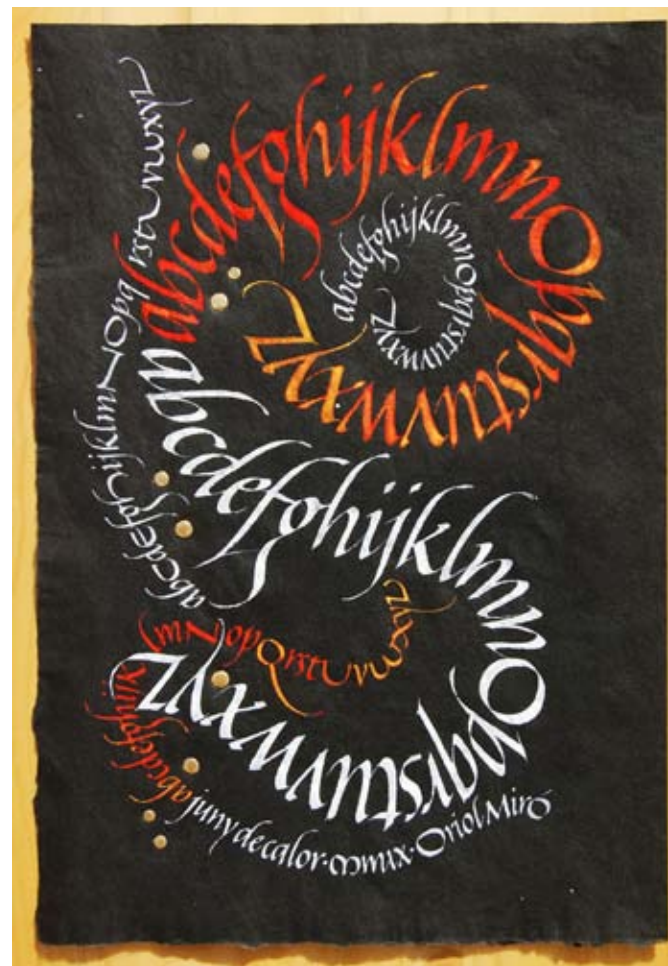 abcdefghijklmNOpqrstuvwxyz
abcdefghijklmnOpqrstuvwxyz
abcdefghijklmnopqrstuvwxyz
abcdefghijklmnOpqrstuvwxyz
abcdefghijklmNopQrstuvwxyz
juny de calor · mmix · Oriol Miró